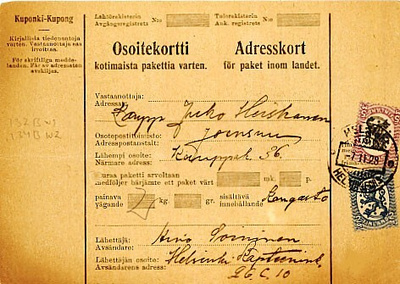 Kuponki-Kupong
Kirjallisia tiedonantoja
varten. Vastaanottaja saa
irroittaa.
För skriftliga medde-
landen. Får av adressaten
avskiljas.
132 B W1
134 B W2
Lähtörekisterin
Avgångsregistrets
No:
Tulorekisterin
Ank. registrets
No:
Osoitekortti Adresskort
kotimaista pakettia varten. för paket inom landet.
Vastaanottaja:
Adressat:
Kaupp. Juho Heiskanen
Osoitepostitoimisto:
Adresspostanstalt:
Joensuu
Lähempi osoite:
Närmare adress:
Kauppak. 36.
Seuraa paketti arvoltaan
medföljer härjämte ett paket värt mk. p.
painava
vägande
kg. gr.
sisältävä
innehållande
Kangasta
Lähettäjä:
Avsändare:
Soininen
Lähettäjän osoite:
Avsändarens adress:
Helsinki
26. C. 10
HELSINKI